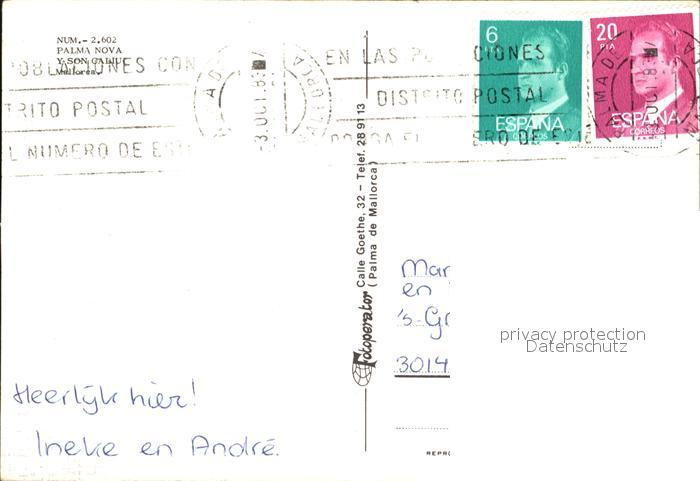 NUM.- 2.602
PALMA NOVA
Mallorca
POBLACIONES CON
DISTRITO POSTAL
EL NUMERO DE
3 OCT 83
EN LAS POBLACIONES
DISTRITO POSTAL
PONGA EL NUMERO DE
6
ESPAÑA
CORREOS
20
PTA
ESPAÑA
CORREOS
Fotoperator Calle Goethe, 32 - Telef. 28 91 13
(Palma de Mallorca)
Mar
en
's-Gr
3014
privacy protection
Datenschutz
Heerlijk hier!
Ineke en André.
REPRO